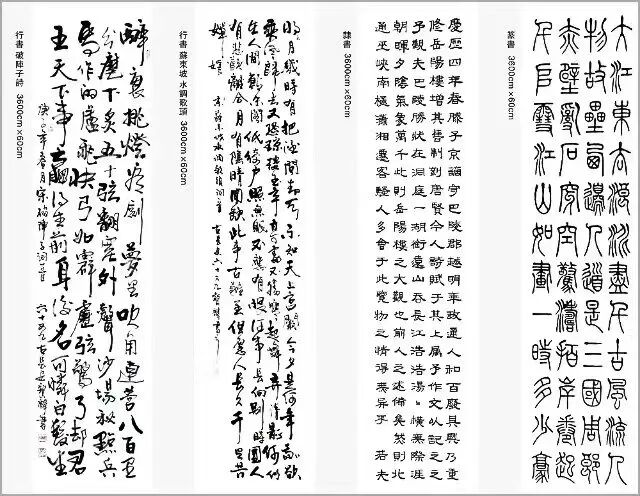 篆書 3600cm×60cm
大江東去浪淘盡千古風流人
物故壘西邊人道是三國周郎
赤壁亂石穿空驚濤拍岸卷起
千堆雪江山如畫一時多少豪
隸書 3600cm×60cm
慶歷四年春滕子京謫守巴陵郡越明年政通人和百廢具興乃重
修岳陽樓增其舊制刻唐賢今人詩賦于其上屬予作文以記之
予觀夫巴陵勝狀在洞庭一湖銜遠山吞長江浩浩湯湯橫無際涯
朝暉夕陰氣象萬千此則岳陽樓之大觀也前人之述備矣然則北
通巫峽南極瀟湘遷客騷人多會于此覽物之情得無異乎 若夫
行書 蘇東坡水調歌頭 3600cm×60cm
明月幾時有把酒問青天不知天上宮闕今夕是何年我欲
乘風歸去又恐瓊樓玉宇高處不勝寒起舞弄清影何似
在人間轉朱閣低綺戶照無眠不應有恨何事長向別時圓人
有悲歡離合月有陰晴圓缺此事古難全但願人長久千里共
嬋娟
行書 破陣子詩 3600cm×60cm
醉裏挑燈看劍夢回吹角連營八百里
分麾下炙五十弦翻塞外聲沙場秋點兵
馬作的盧飛快弓如霹靂弦驚了却君
王天下事贏得生前身後名可憐白髮生